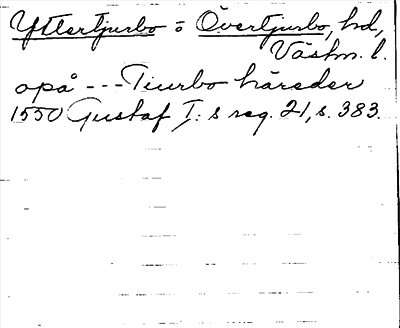 Yttertjurbo o Övertjurbo, hd,
Västm. l.
opå --- Tiurbo härader
1550 Gustaf I:s reg. 21, s. 383.